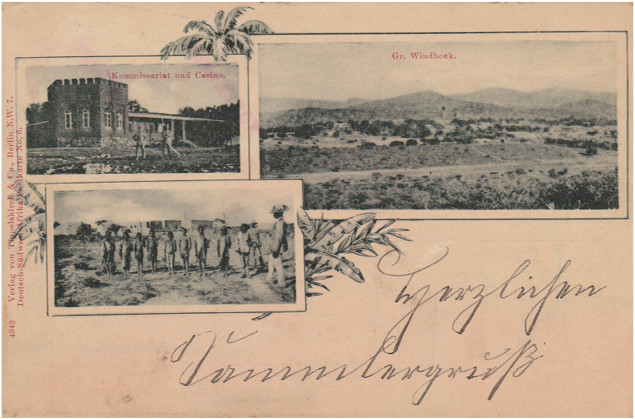 Kommissariat und Casino.
Gr. Windhoek.
Verlag von Tippelskirch & Co., Berlin N.W. 7.
Deutsch-Südwest-Afrika Postkarte No. 6.
4942
Herzlichen
Sammlergruß